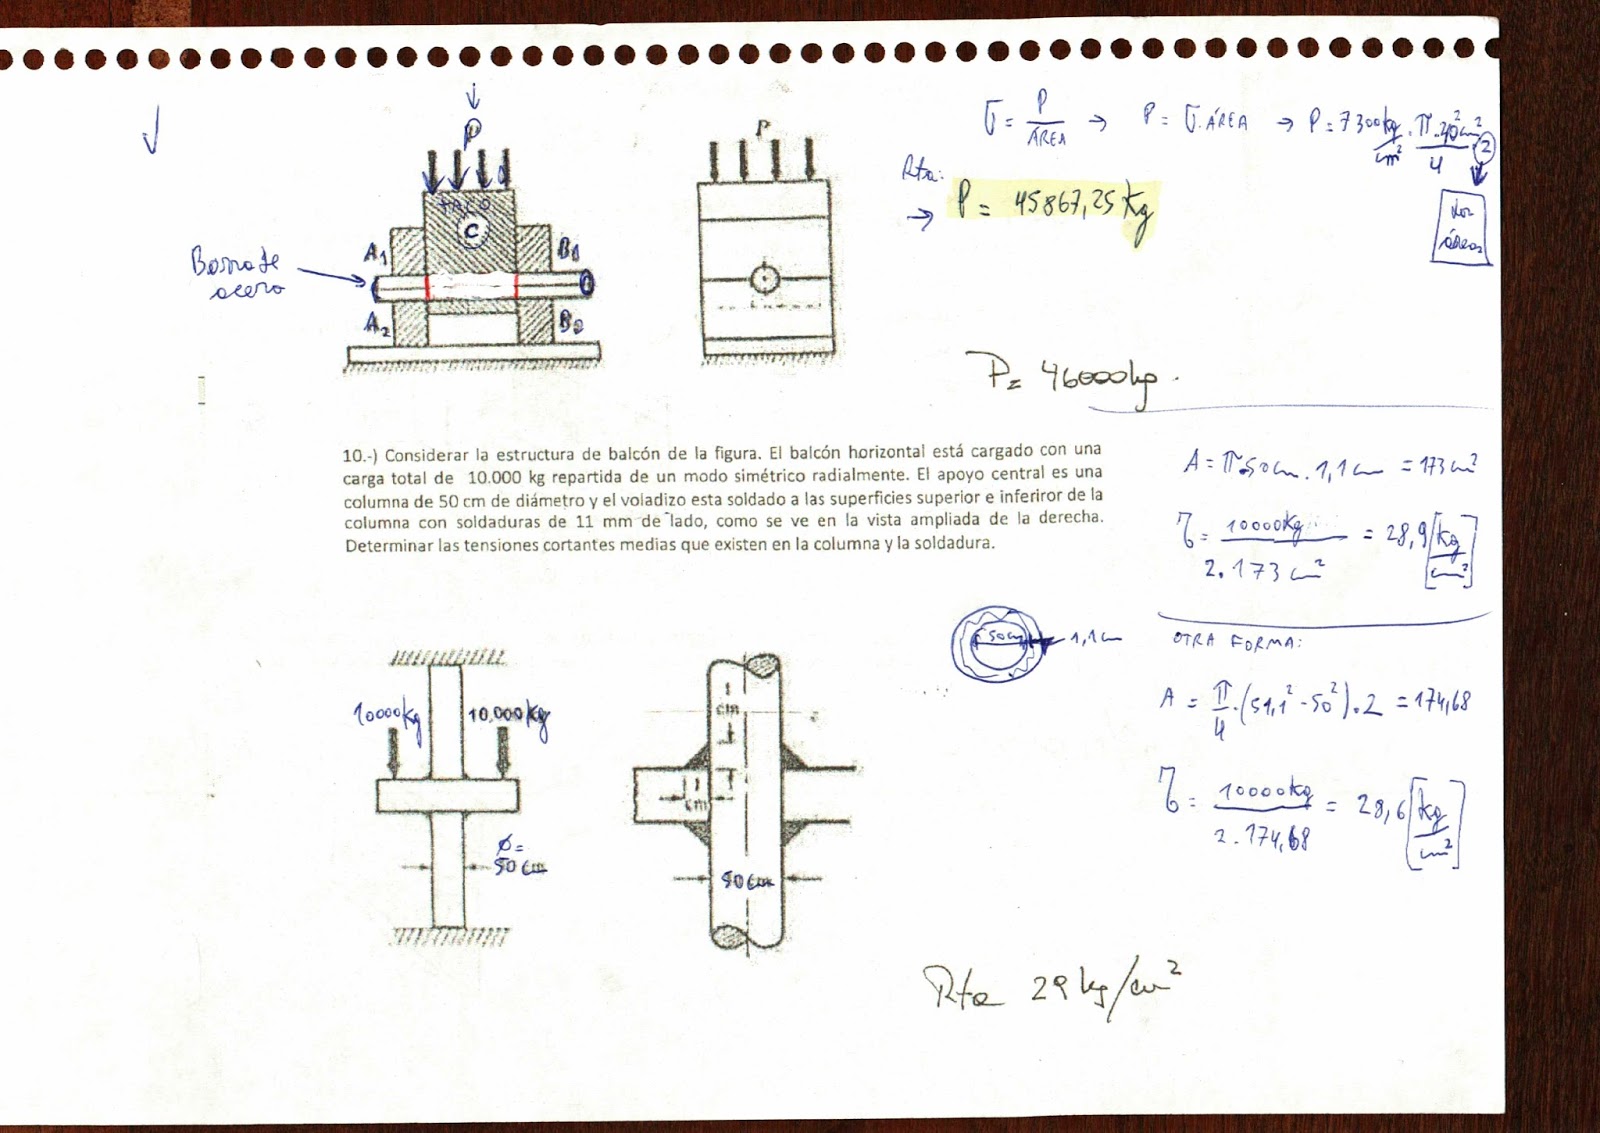 P
P
σ = P/ÁREA → P = σ.ÁREA → P = 7300 kg/cm² . π.
4
2
Rta:
→ P = 45867,25 kg
áreas
TACO
C
A1
B1
A2
B2
acero
P = 46000 kg.
10.-) Considerar la estructura de balcón de la figura. El balcón horizontal está cargado con una
carga total de 10.000 kg repartida de un modo simétrico radialmente. El apoyo central es una
columna de 50 cm de diámetro y el voladizo esta soldado a las superficies superior e inferiror de la
columna con soldaduras de 11 mm de lado, como se ve en la vista ampliada de la derecha.
Determinar las tensiones cortantes medias que existen en la columna y la soldadura.
A = π 50 cm . 1,1 cm = 173 cm²
τ = 10000 kg / 2. 173 cm² = 28,9 [kg/cm²]
50 cm
1,1 cm
OTRA FORMA:
A = π/4 . (51,1² - 50²) . 2 = 174,68
τ = 10000 kg / 2. 174,68 = 28,6 [kg/cm²]
10000 kg
10.000 kg
Ø =
50 cm
1
cm
1
cm
50 cm
Rta 29 kg/cm²